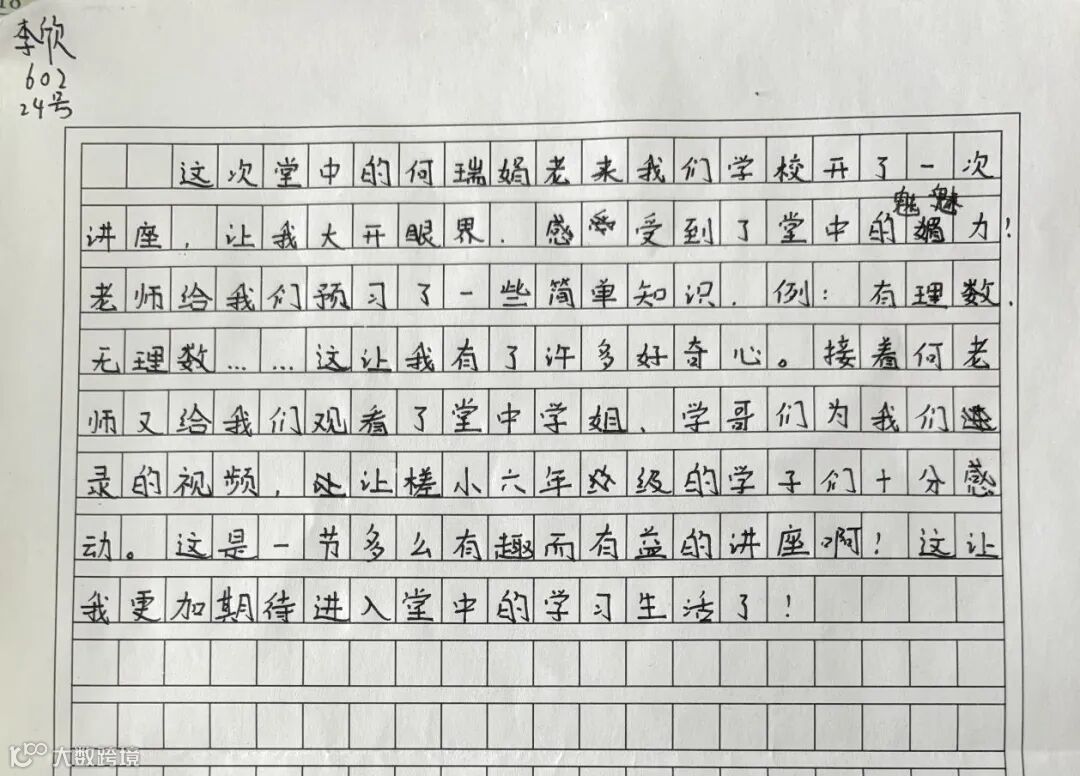 李欣
602
24号
这次堂中的何瑞娟老来我们学校开了一次
讲座，让我大开眼界，感受到了堂中的魅力！
老师给我们预习了一些简单知识，例：有理数、
无理数……这让我有了许多好奇心。接着何老
师又给我们观看了堂中学姐、学哥们为我们
录的视频，让槎小六年级的学子们十分感
动。这是一节多么有趣而有益的讲座啊！这让
我更加期待进入堂中的学习生活了！
大数跨境